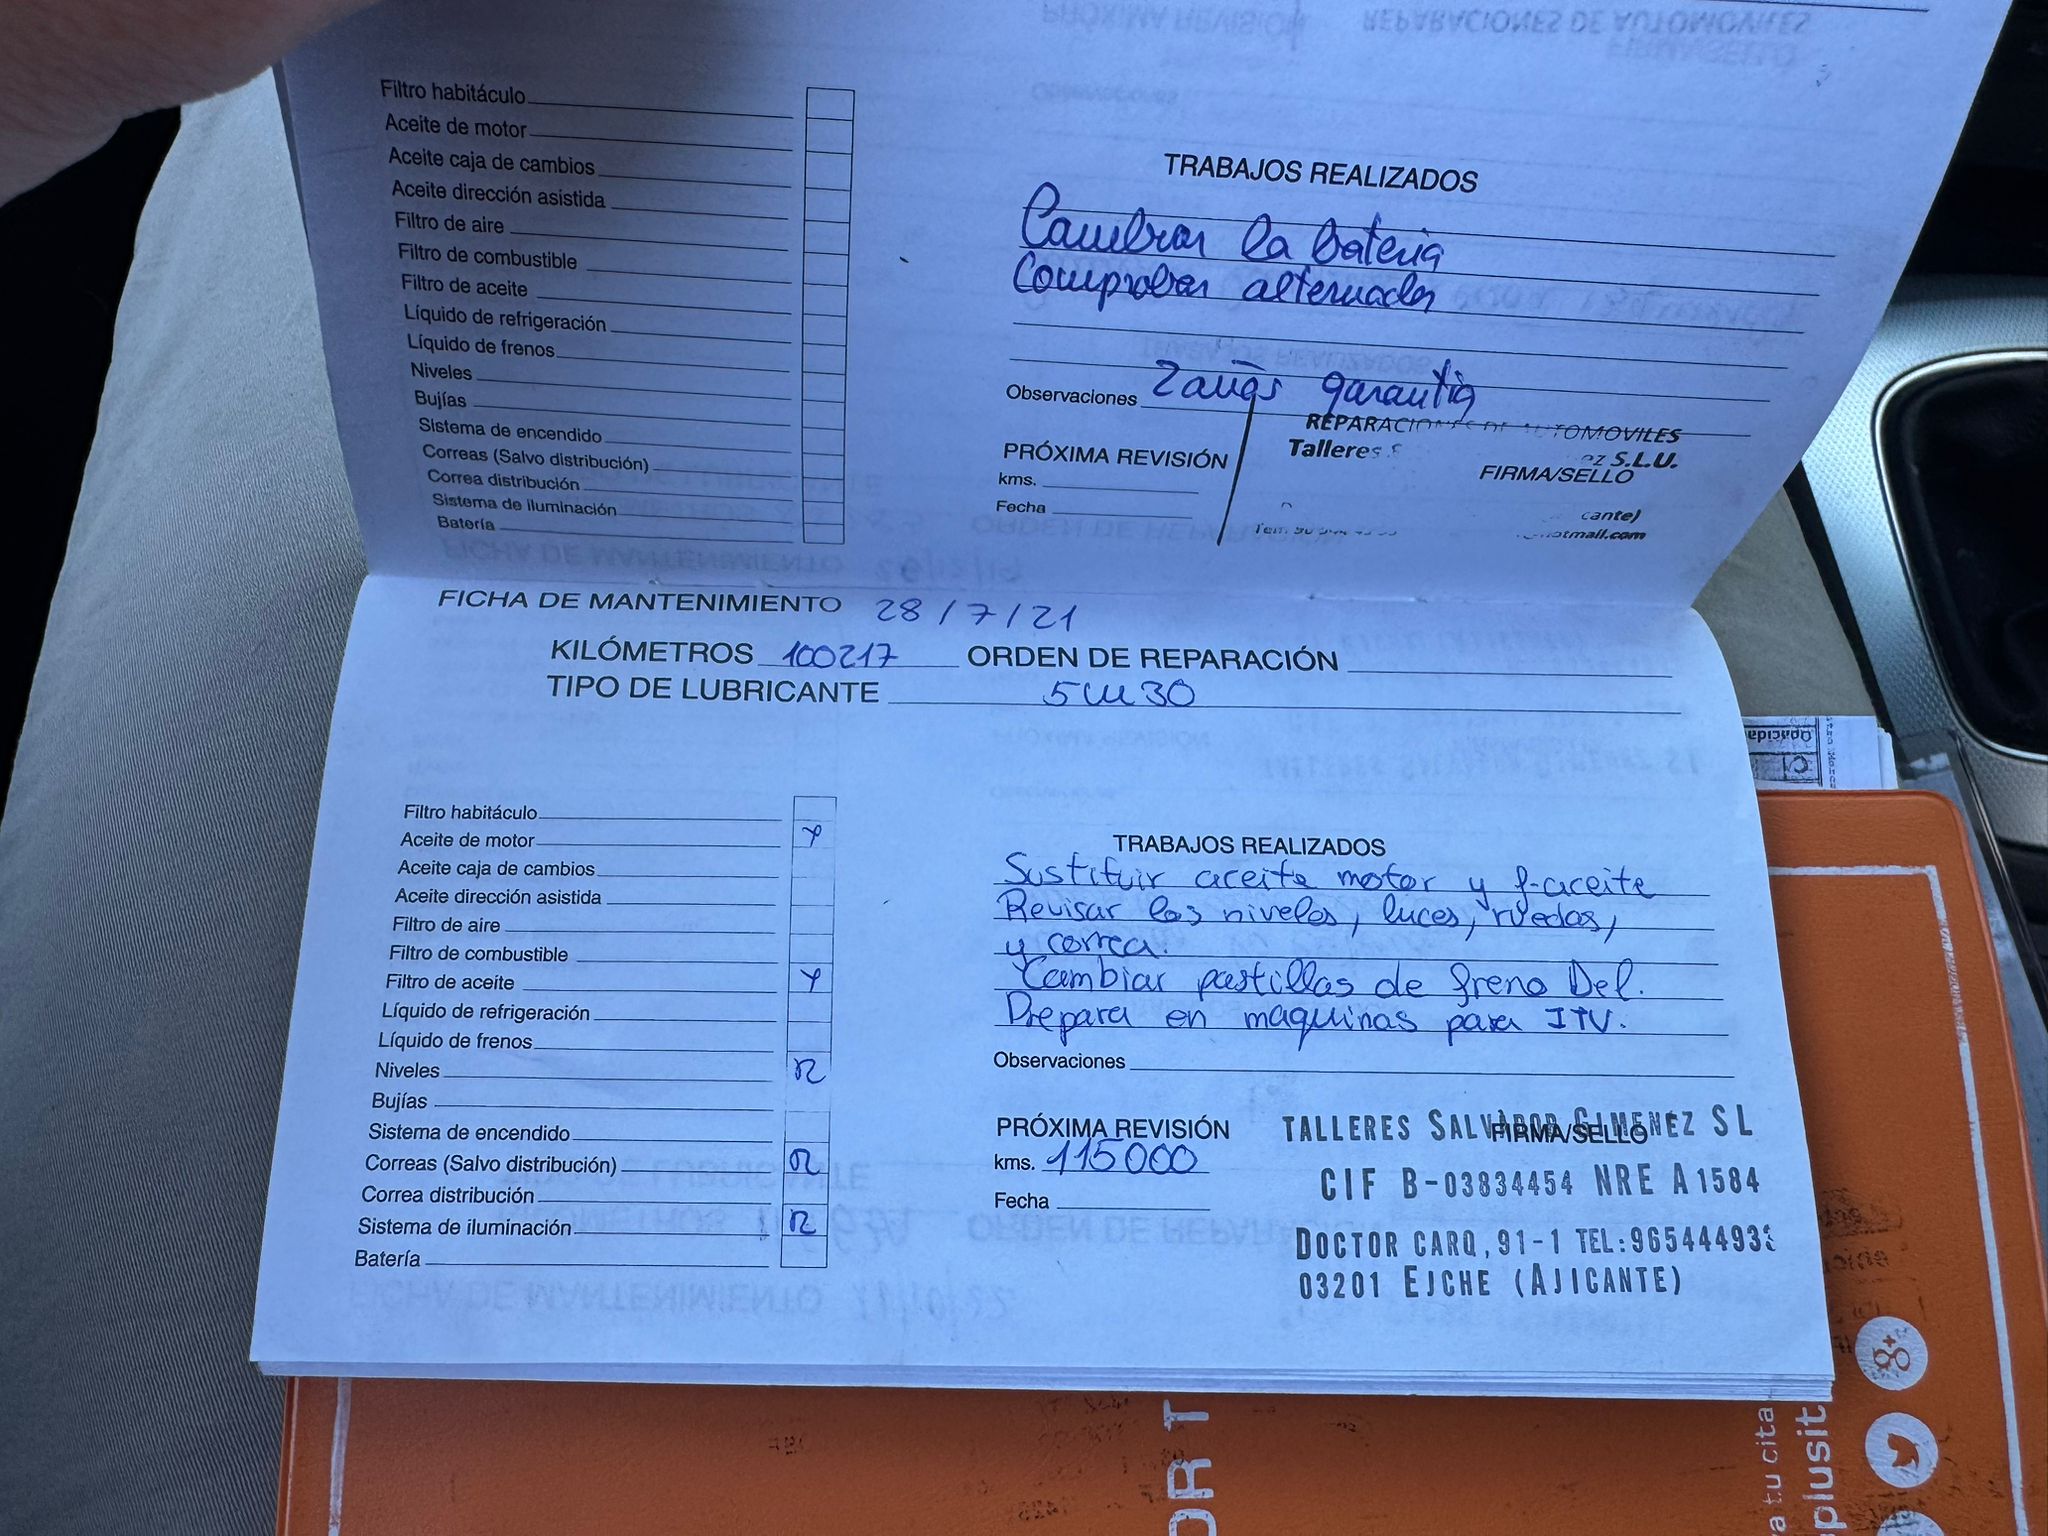 Filtro habitáculo
Aceite de motor
Aceite caja de cambios
Aceite dirección asistida
Filtro de aire
Filtro de combustible
Filtro de aceite
Líquido de refrigeración
Líquido de frenos
Niveles
Bujías
Sistema de encendido
Correas (Salvo distribución)
Correa distribución
Sistema de iluminación
Batería
TRABAJOS REALIZADOS
Cambiar la bateria
Comprobar alternador
Observaciones 2 años garantia
REPARACIONES DE AUTOMOVILES
Talleres S.L.U.
PRÓXIMA REVISIÓN
FIRMA/SELLO
kms.
Fecha
FICHA DE MANTENIMIENTO 28/7/21
KILÓMETROS 100217 ORDEN DE REPARACIÓN
TIPO DE LUBRICANTE 5W30
Filtro habitáculo
Aceite de motor
Aceite caja de cambios
Aceite dirección asistida
Filtro de aire
Filtro de combustible
Filtro de aceite
Líquido de refrigeración
Líquido de frenos
Niveles R
Bujías
Sistema de encendido
Correas (Salvo distribución) R
Correa distribución
Sistema de iluminación R
Batería
TRABAJOS REALIZADOS
Sustituir aceite motor y f-aceite
Revisar los niveles, luces, ruedas,
y correa.
Cambiar pastillas de freno Del.
Prepara en maquinas para ITV.
Observaciones
PRÓXIMA REVISIÓN
kms. 115000
Fecha
FIRMA/SELLO
TALLERES SALVADOR GIMENEZ SL
CIF B-03834454 NRE A1584
DOCTOR CARO, 91-1 TEL:965444933
03201 ELCHE (ALICANTE)